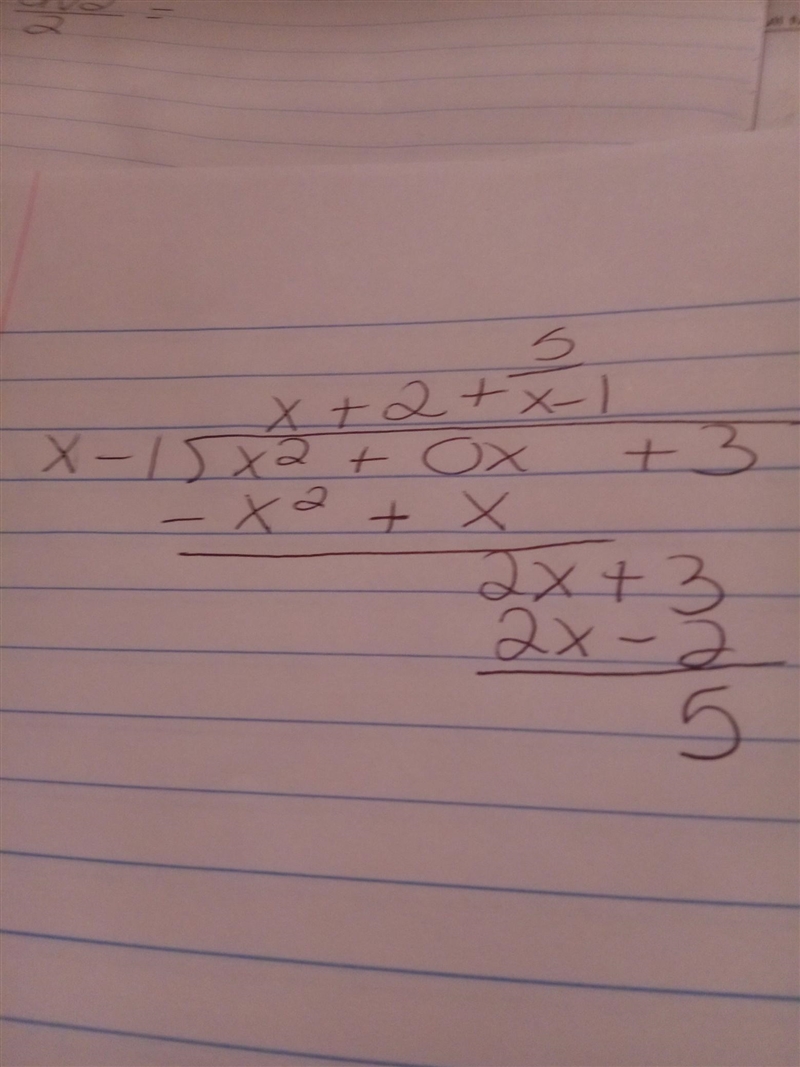 2 =
5
x + 2 + x - 1
x - 1 ) x² + 0x + 3
- x² + x
2x + 3
2x - 2
5